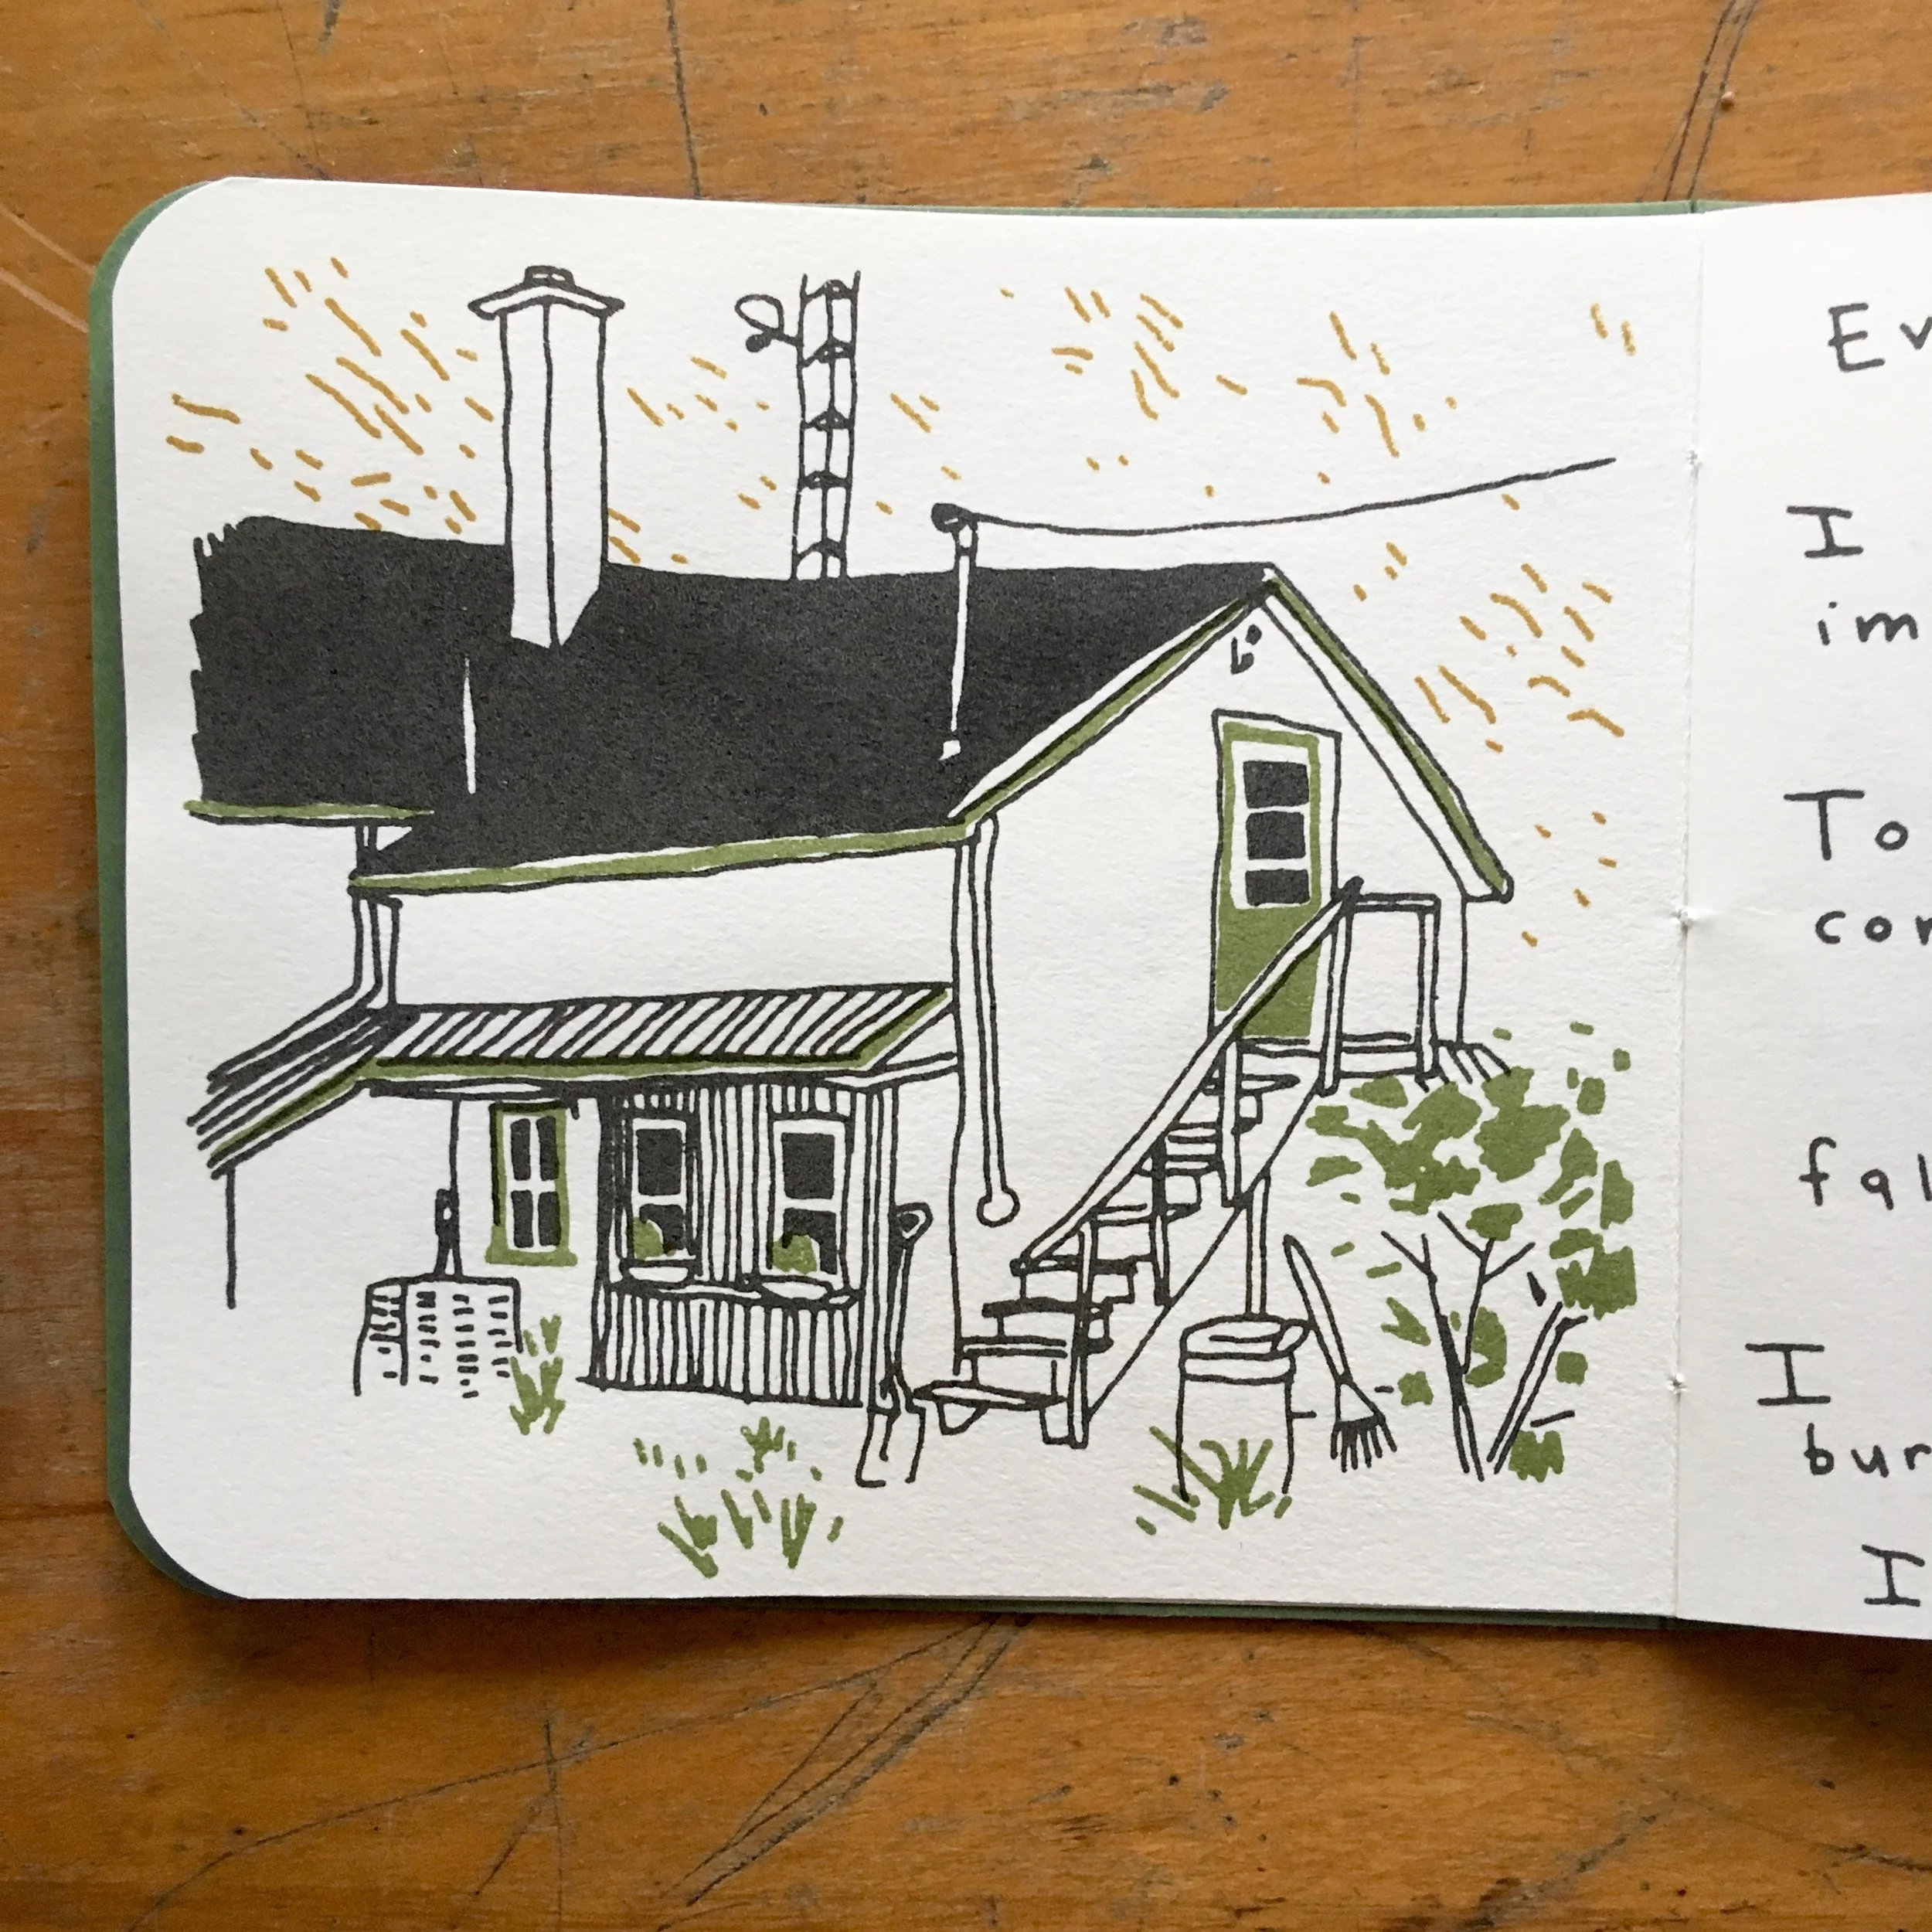 Ev
I
im
To
con
fal
I
bur
I